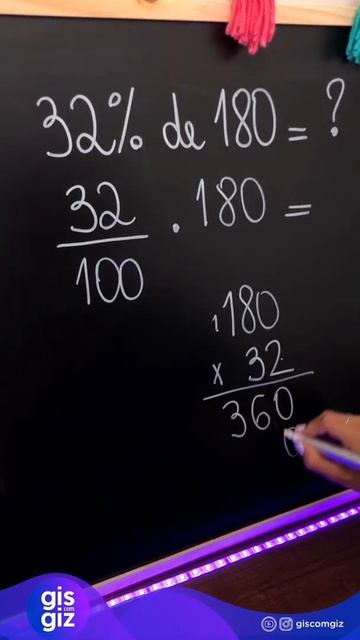 32% de 180 = ?
32
100
. 180 =
1
180
x 32
360
0
gis
com
giz
giscomgiz